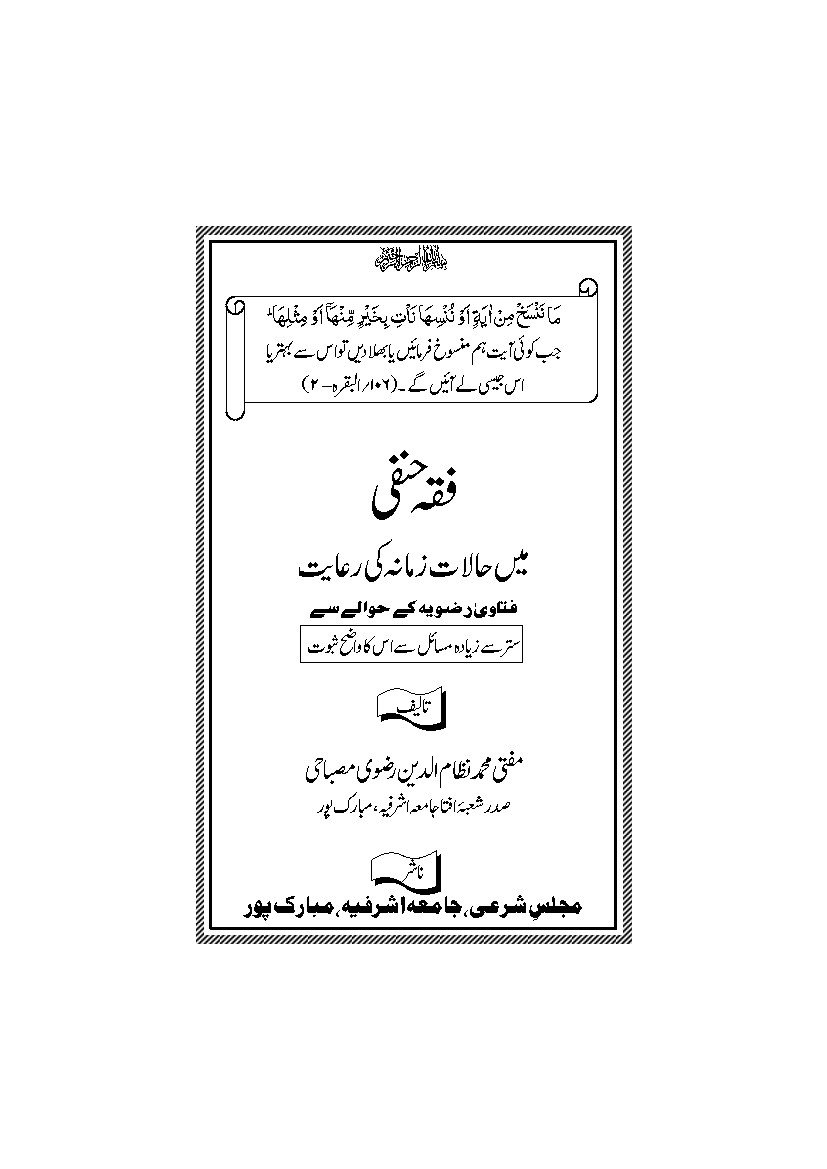 بسم اللہ الرحمن الرحیم
مَا نَنْسَخْ مِنْ اٰیَةٍ اَوْ نُنْسِهَا نَاْتِ بِخَیْرٍ مِّنْهَاۤ اَوْ مِثْلِهَاؕ
جب کوئی آیت ہم منسوخ فرمائیں یا بھلا دیں تو اس سے بہتر یا
اس جیسی لے آئیں گے۔ (۱۰۶/ البقرہ–۲)
فقہ حنفی
میں حالات زمانہ کی رعایت
فتاویٰ رضویہ کے حوالے سے
ستر سے زیادہ مسائل سے اس کا واضح ثبوت
تالیف
مفتی محمد نظام الدین رضوی مصباحی
صدر شعبۂ افتا جامعہ اشرفیہ، مبارک پور
ناشر
مجلسِ شرعی، جامعہ اشرفیہ، مبارک پور